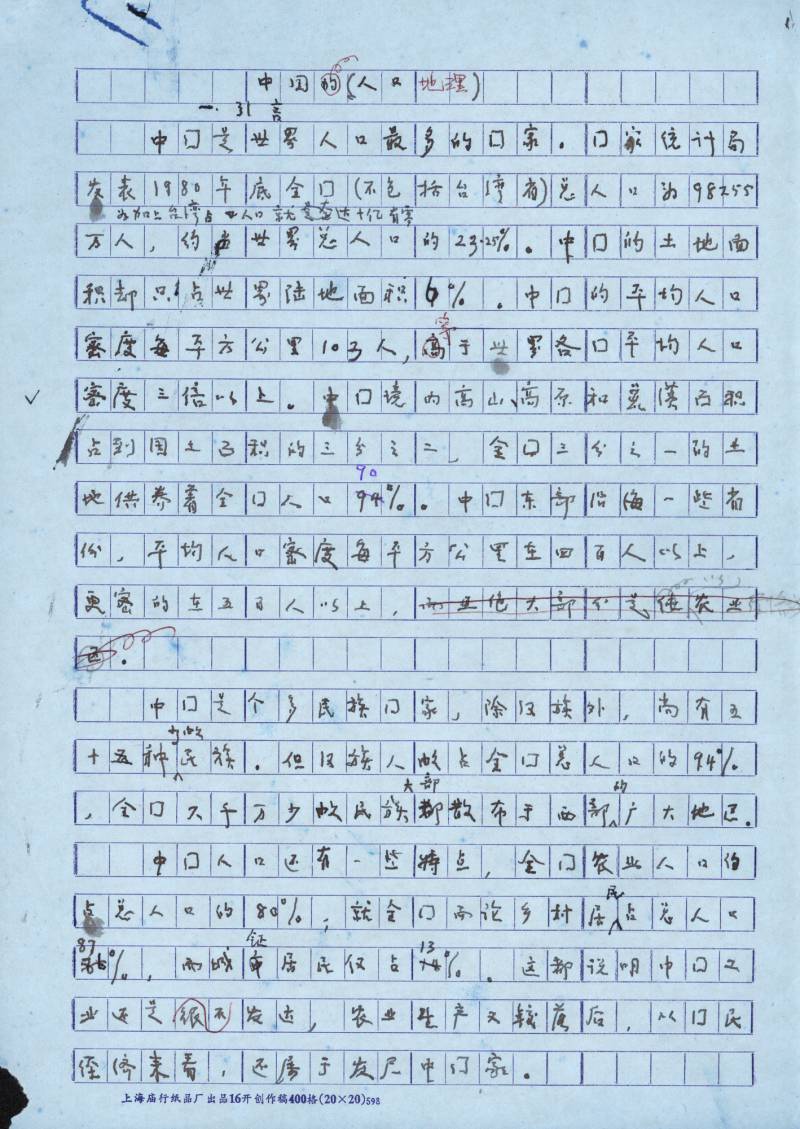 中国的(人口地理)
一. 引言
中国是世界人口最多的国家。国家统计局
发表1980年底全国(不包括台湾省)总人口为98255
万人,约占世界总人口的23.25%。中国的土地面
积却只占世界陆地面积6%。中国的平均人口
密度每平方公里103人,高于世界各国平均人口
密度三倍以上。中国境内高山、高原和荒漠面积
占到国土面积的三分之二,全国三分之一的土
90
地供养着全国人口94%。中国东部沿海一些省
份,平均人口密度每平方公里在四百人以上,
更密的在五百人以上,而其他大部分是纯农业
区。
中国是个多民族国家,除汉族外,尚有五
少数
十五种民族。但汉族人数占全国总人口的94%
大部 的
,全国六千万少数民族都散布于西部广大地区。
中国人口还有一些特点,全国农业人口约
民
占总人口的80%,就全国而论乡村居占总人口
87 镇 13
86%,而城市居民仅占14%。这都说明中国工
业还是很不发达,农业生产又较落后,从国民
经济来看,还属于发展中国家。
上海庙行纸品厂出品16开创作稿400格(20×20)598